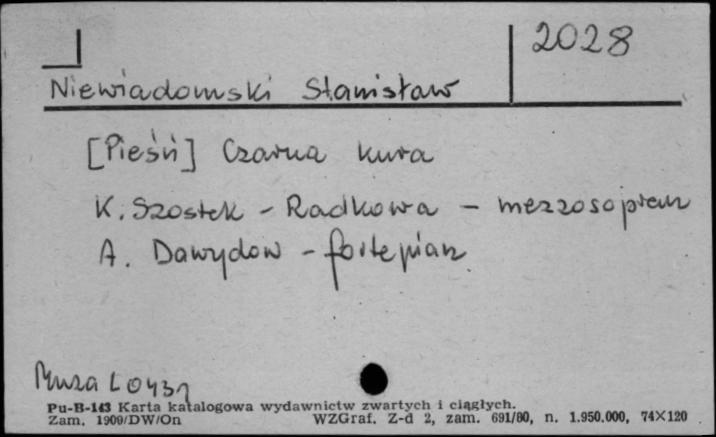 2028
Niewiadomski Stanisław
[Pieśń] Czarna kura
K. Szostek - Radkowa - mezzosopran
A. Dawydow - fortepian
Muza L 0431
Pu-B-143 Karta katalogowa wydawnictw zwartych i ciągłych.
Zam. 1909/DW/On WZGraf. Z-d 2, zam. 691/80, n. 1.950.000, 74×120